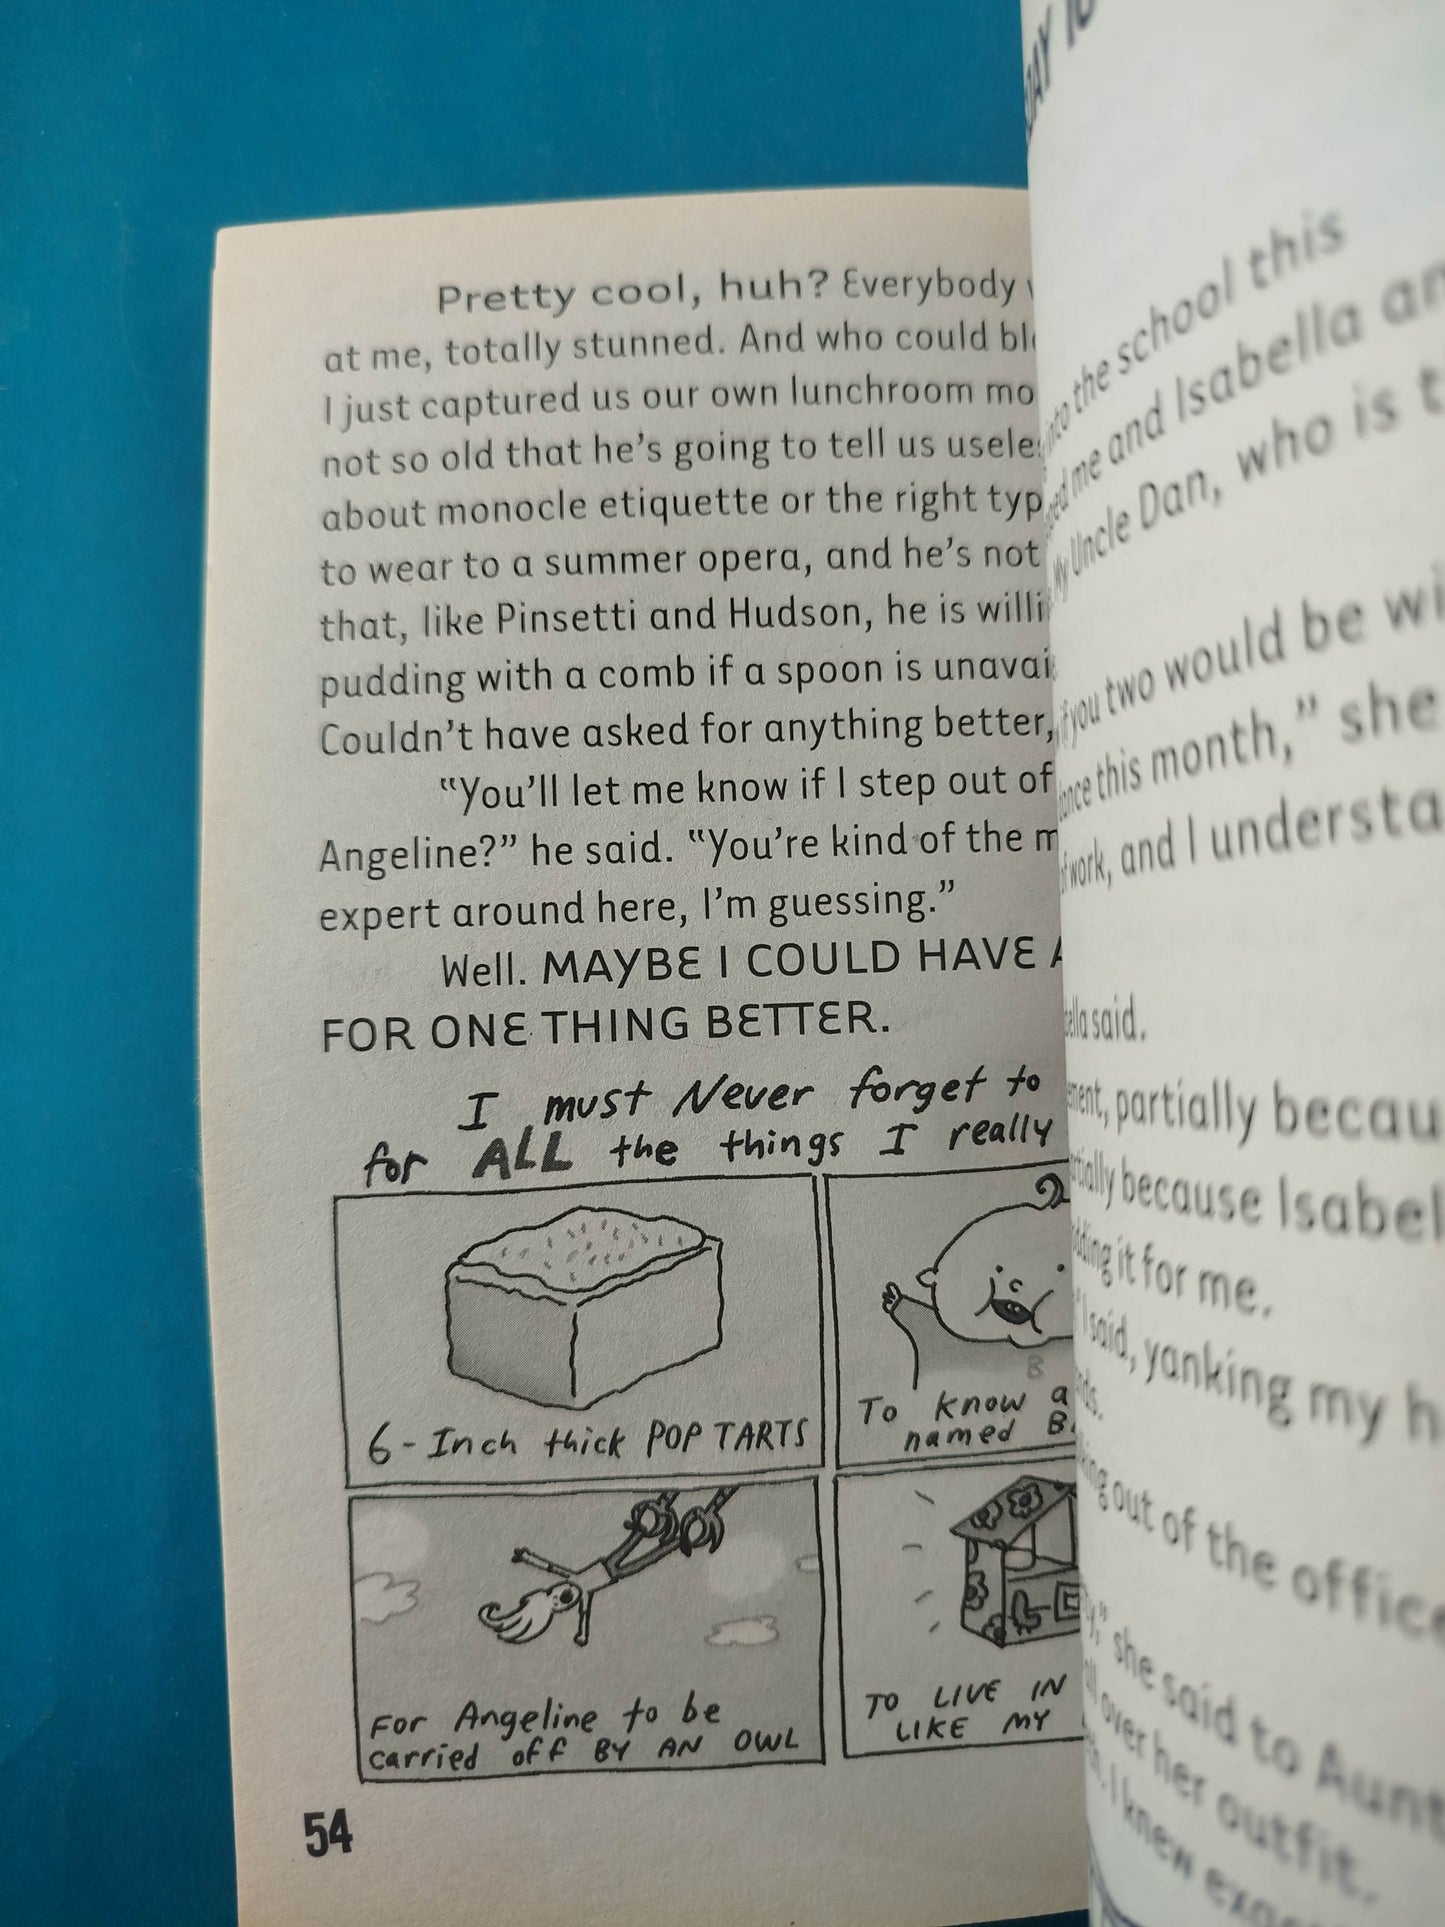 Pretty cool, huh? Everybody
at me, totally stunned. And who could
I just captured us our own lunchroom
not so old that he's going to tell us
about monocle etiquette or the right
to wear to a summer opera, and he's not
that, like Pinsetti and Hudson, he is
pudding with a comb if a spoon is
Couldn't have asked for anything better,
"You'll let me know if I step out of
Angeline?" he said. "You're kind of the
expert around here, I'm guessing."
Well. MAYBE I COULD HAVE
FOR ONE THING BETTER.
I must Never forget to
for ALL the things I really
6-Inch thick POP TARTS
To know a
named
For Angeline to be
carried off BY AN OWL
TO LIVE IN
LIKE MY
54
into the school this
me and Isabella
My Uncle Dan, who is
if you two would be
this month," she
work, and I
said.
partially
because
it for me.
I said, yanking my
out of the office
she said to
over her outfit.
I knew